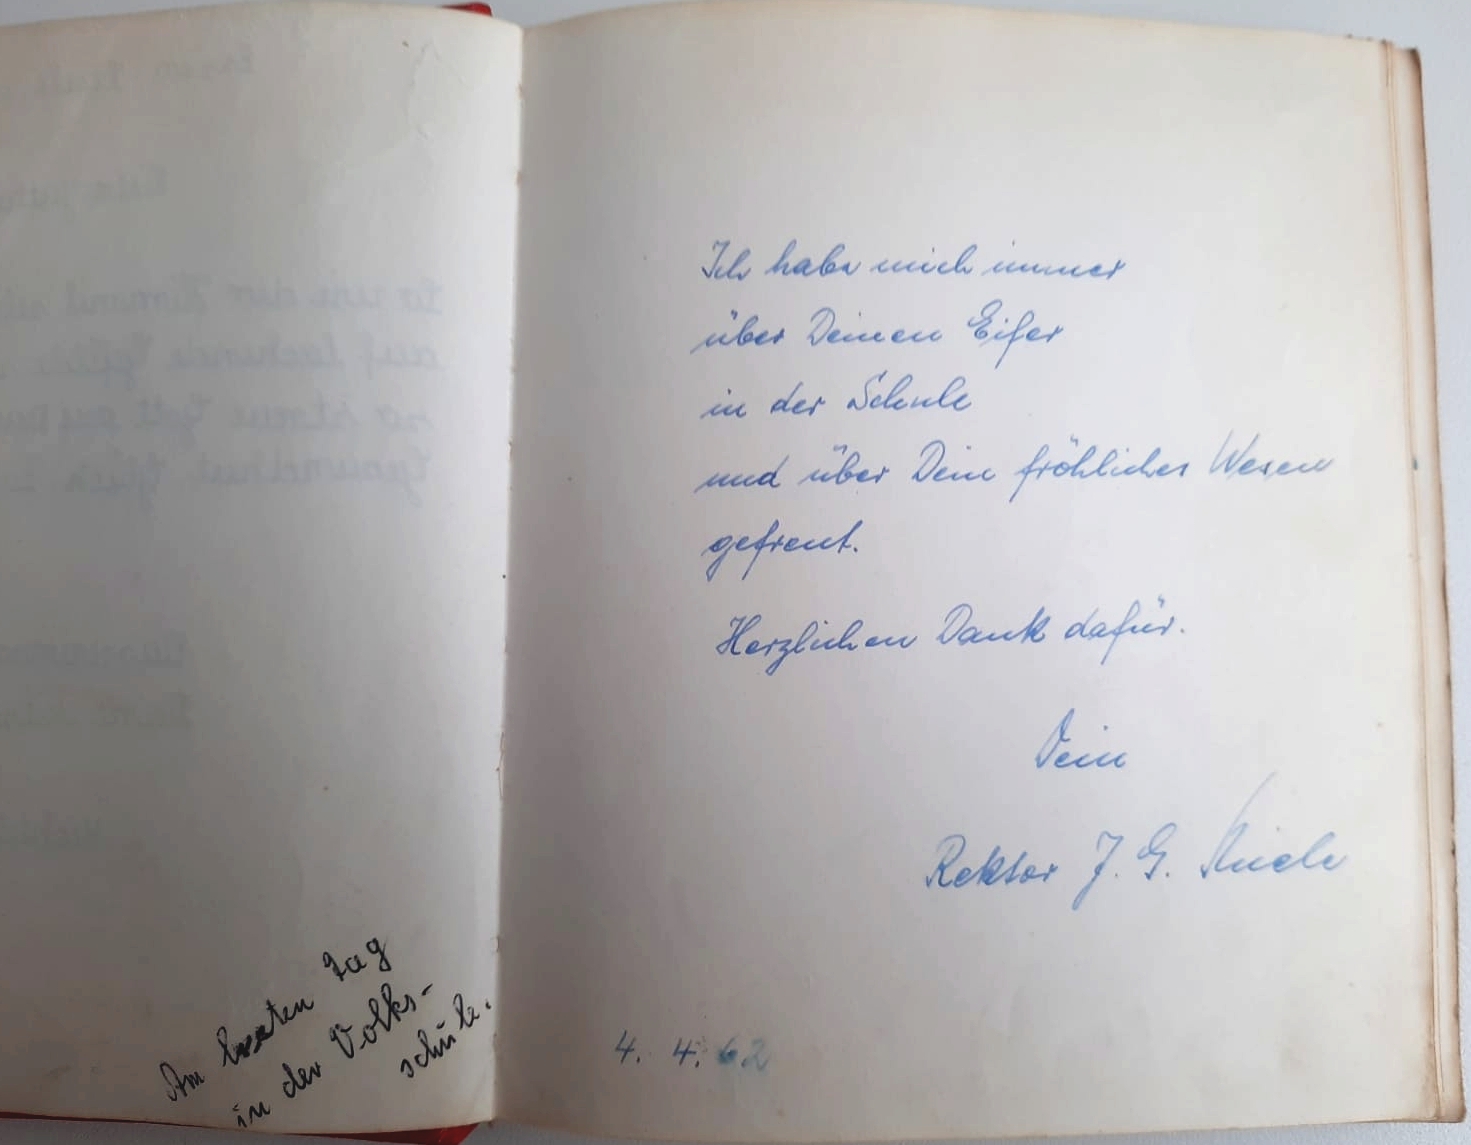 Am letzten Tag
in der Volks-
schule.
Ich habe mich immer
über Deinen Eifer
in der Schule
und über Dein fröhliches Wesen
gefreut.
Herzlichen Dank dafür.
Dein
Rektor J. G.
4. 4. 62